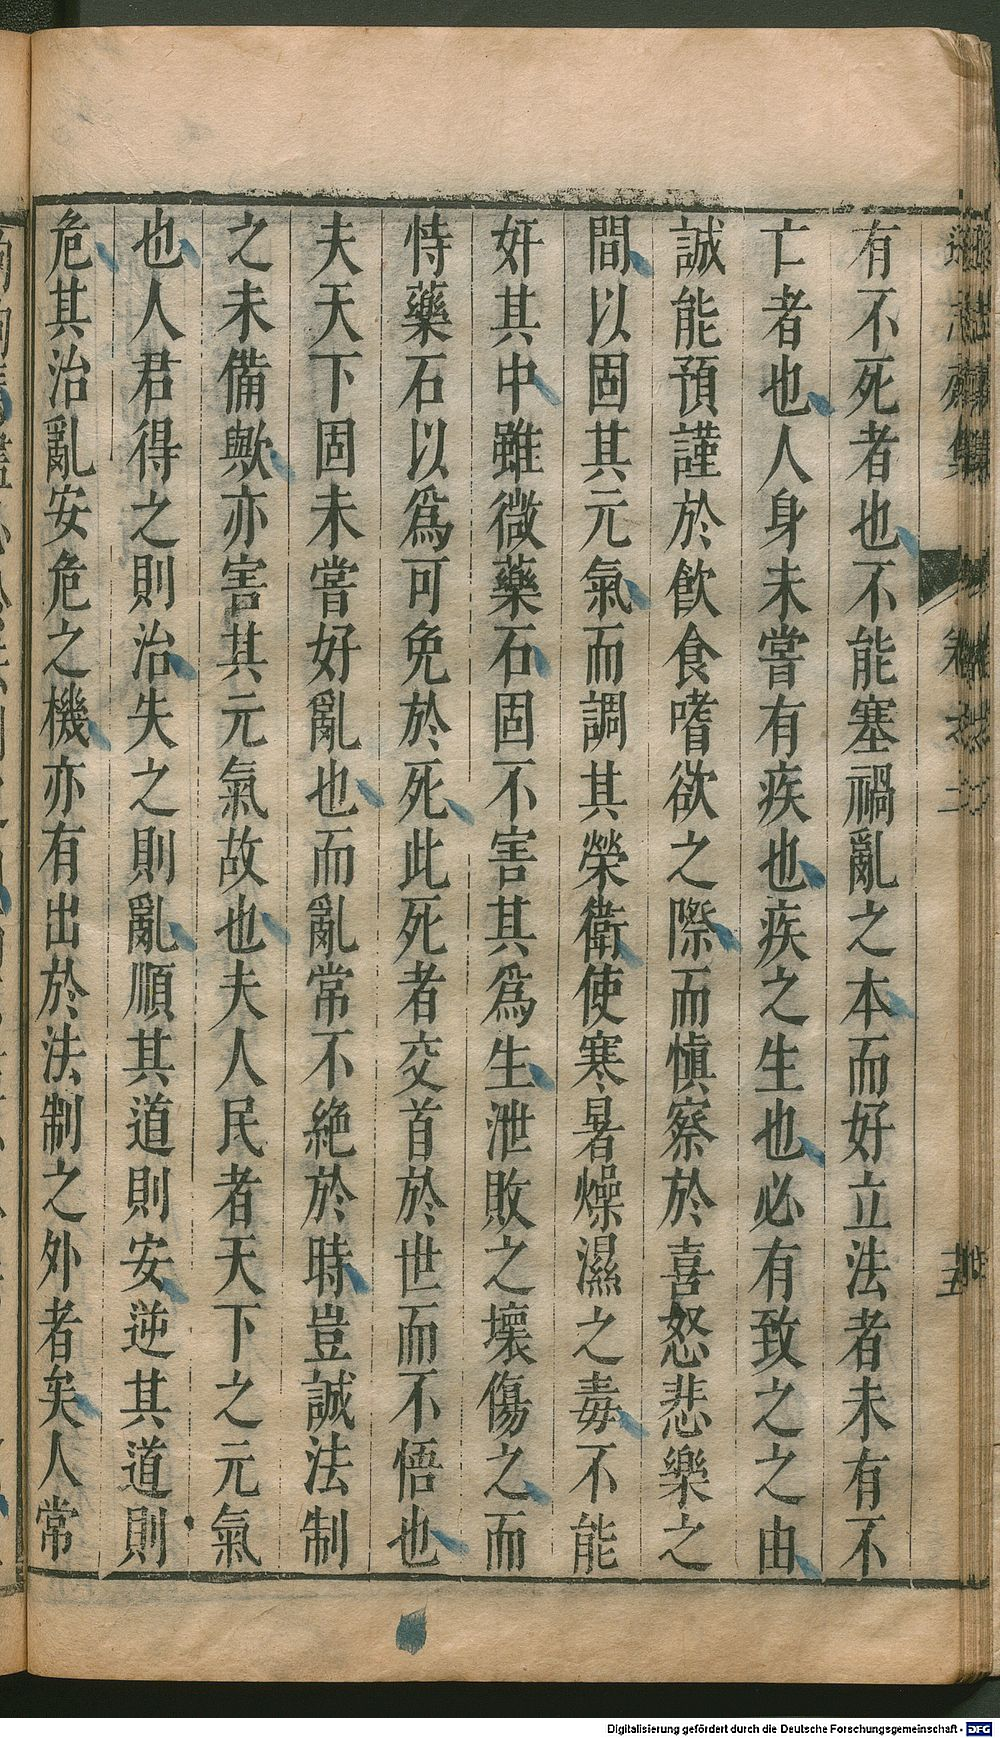 有不死者也不能塞禍亂之本而好立法者未有不
亡者也人身未嘗有疾也疾之生也必有致之之由
誠能預謹於飲食嗜欲之際而慎察於喜怒悲樂之
間以固其元氣而調其榮衛使寒暑燥濕之毒不能
奸其中雖微藥石固不害其爲生泄敗之壞傷之而
恃藥石以爲可免於死此死者交首於世而不悟也
夫天下固未嘗好亂也而亂常不絶於時豈誠法制
之未備歟亦害其元氣故也夫人民者天下之元氣
也人君得之則治失之則亂順其道則安逆其道則
危其治亂安危之機亦有出於法制之外者矣人常
Digitalisierung gefördert durch die Deutsche Forschungsgemeinschaft - DFG